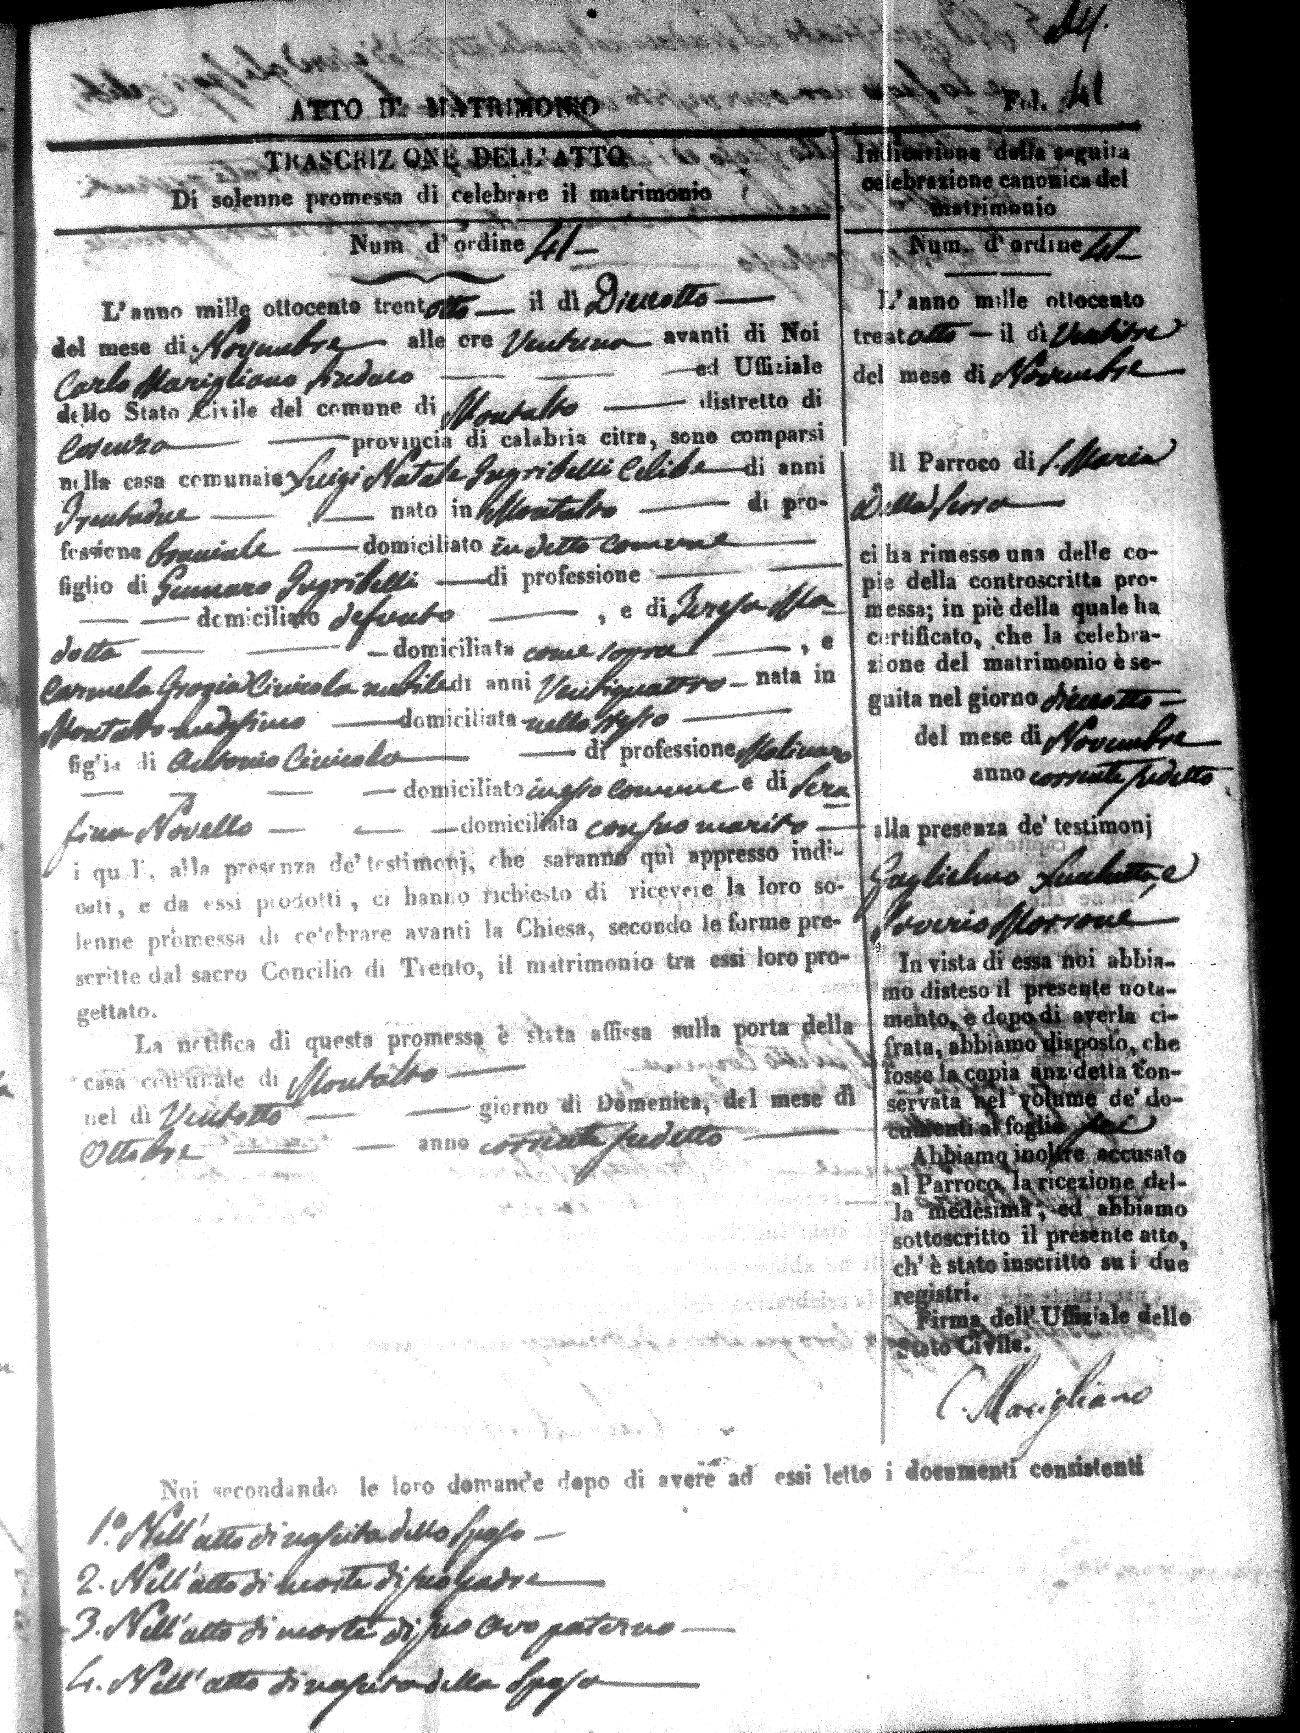 41
ATTO DI MATRIMONIO
Fol. 41
TRASCRIZIONE DELL'ATTO
Di solenne promessa di celebrare il matrimonio
Num. d'ordine 41
L'anno mille ottocento trentotto il dì Dieciotto
del mese di Novembre alle ore Ventuno avanti di Noi
Carlo Marigliano Sindaco ed Uffiziale
dello Stato Civile del comune di Montalto distretto di
Cosenza provincia di calabria citra, sono comparsi
nella casa comunale Luigi Natale Celibe di anni
Trentadue nato in Montalto di pro-
fessione domiciliato in detto comune
figlio di Gennaro di professione
domiciliato defunto , e di Teresa
domiciliata come sopra , e
Carmela Grazia Civicola nubile di anni Ventiquattro nata in
Montalto domiciliata nello stesso
figlia di Antonio Civicola di professione Molinaro
domiciliato in questo comune e di Sera
fina Novello domiciliata con suo marito
i quali, alla presenza de' testimonj, che saranno quì appresso indi-
cati, e da essi prodotti, ci hanno richiesto di ricevere la loro so-
lenne promessa di celebrare avanti la Chiesa, secondo le forme pre-
scritte dal sacro Concilio di Trento, il matrimonio tra essi loro pro-
gettato.
La notifica di questa promessa è stata affissa sulla porta della
casa comunale di Montalto
nel dì Ventotto giorno di Domenica, del mese di
Ottobre anno corrente sudetto
Indicazione della seguita
celebrazione canonica del
matrimonio
Num. d'ordine 41
L'anno mille ottocento
trentotto il dì Ventitre
del mese di Novembre
Il Parroco di S. Maria
Della Serra
ci ha rimesso una delle co-
pie della controscritta pro-
messa; in piè della quale ha
certificato, che la celebra-
zione del matrimonio è se-
guita nel giorno dieciotto
del mese di Novembre
anno corrente sudetto
alla presenza de' testimonj
Guglielmo e
Saverio Morrone
In vista di essa noi abbia-
mo disteso il presente nota-
mento, e dopo di averla ci-
frata, abbiamo disposto, che
fosse la copia anzidetta con-
servata nel volume de' do-
cumenti al foglio
Abbiamo inoltre accusato
al Parroco la ricezione del-
la medesima, ed abbiamo
sottoscritto il presente atto,
ch' è stato inscritto su i due
registri.
Firma dell' Uffiziale dello
Stato Civile.
C. Marigliano
Noi secondando le loro domande dopo di avere ad essi letto i documenti consistenti
1.º Nell'atto di nascita dello Sposo
2. Nell'atto di morte di suo padre
3. Nell'atto di morte di suo Avo paterno
4. Nell'atto di nascita della Sposa